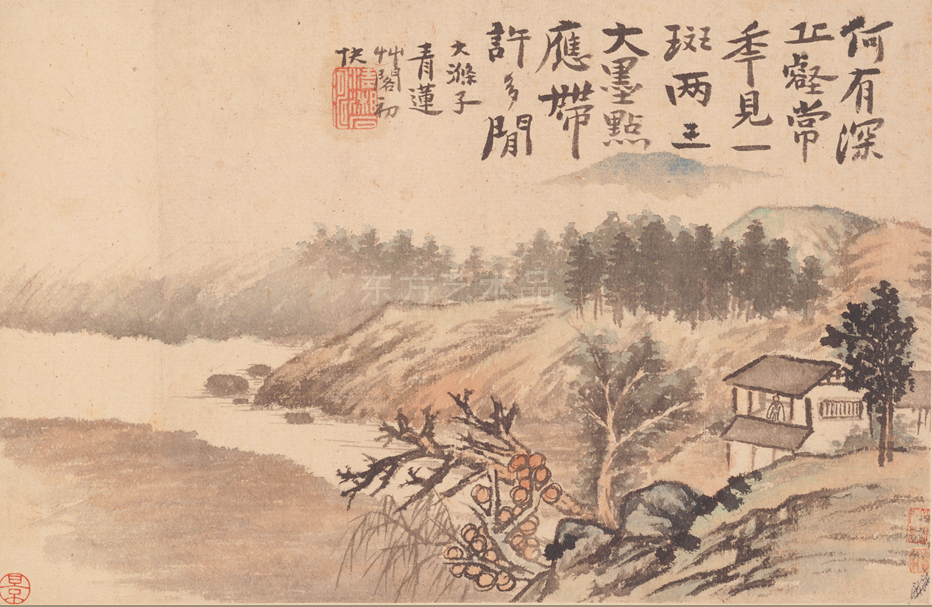 何有深
丘壑常
秊見一
斑两三
大墨點
應帶
許多閒
大滌子
青蓮
艸閣初
快
东方艺术品
景